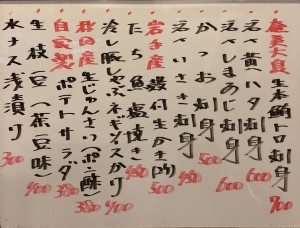 奄美大島 生本鮪トロ刺身 700
石黄ハタ刺身 600
石べしまあじ刺身 600
かつお刺身 500
石いさき刺身 480
岩手産 殻付生かき(1ヶ) 500
たち魚塩焼き 480
冷し豚しゃぶネギソースかけ 400
秋田産 生じゅんさい(ポン酢) 380
自家製 ポテトサラダ 380
生枝豆(茶豆味) 400
水ナス浅漬け 300